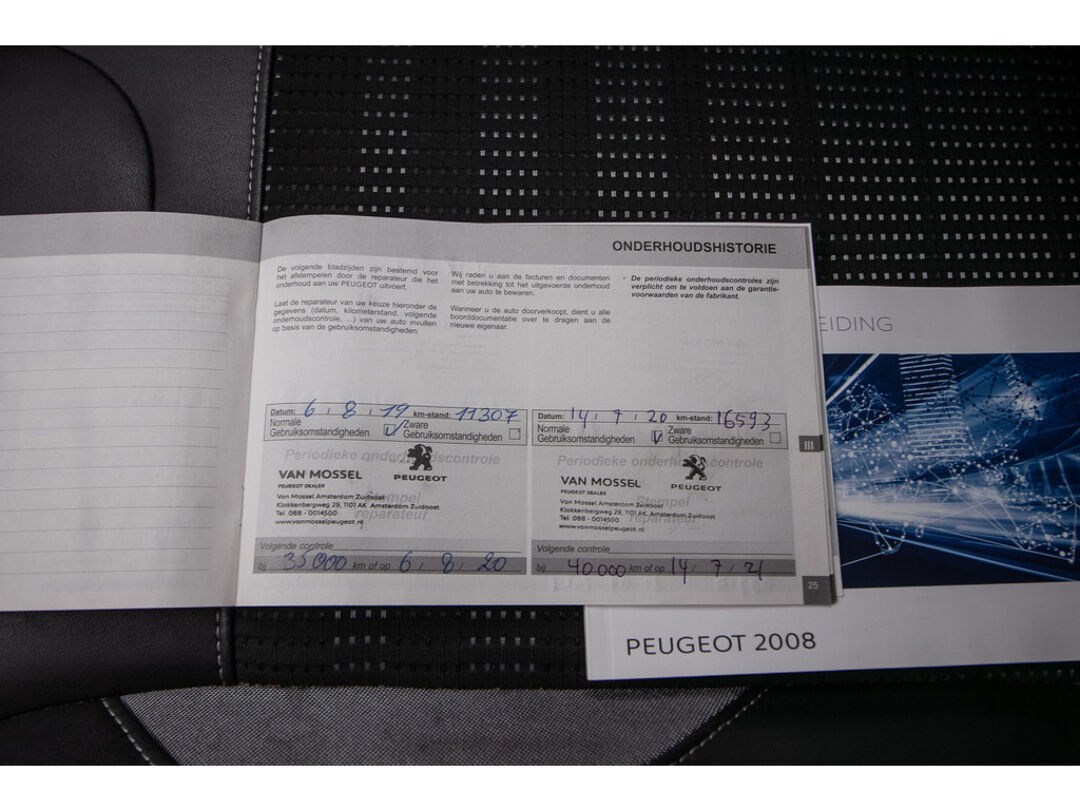 ONDERHOUDSHISTORIE
De volgende bladzijden zijn bestemd voor
het afstempelen door de reparateur die het
onderhoud aan uw PEUGEOT uitvoert.
Laat de reparateur van uw keuze hieronder de
gegevens (datum, kilometerstand, volgende
onderhoudscontrole, ...) van uw auto invullen
op basis van de gebruiksomstandigheden.
Wij raden u aan de facturen en documenten
met betrekking tot het uitgevoerde onderhoud
aan uw auto te bewaren.
Wanneer u de auto doorverkoopt, dient u alle
boorddocumentatie over te dragen aan de
nieuwe eigenaar.
• De periodieke onderhoudscontroles zijn
verplicht om te voldoen aan de garantie-
voorwaarden van de fabrikant.
Datum: 6 / 8 / 19 km-stand: 11307
Normale
Gebruiksomstandigheden
Zware
Gebruiksomstandigheden
Periodieke onderhoudscontrole
VAN MOSSEL
PEUGEOT DEALER
PEUGEOT
Van Mossel Amsterdam Zuidoost
Klokkenbergweg 29, 1101 AK Amsterdam Zuidoost
Tel. 088 - 0014500
www.vanmosselpeugeot.nl
Stempel
reparateur
Volgende controle
bij 35000 km of op 6 / 8 / 20
Datum: 14 / 7 / 20 km-stand: 16593
Normale
Gebruiksomstandigheden
Zware
Gebruiksomstandigheden
Periodieke onderhoudscontrole
VAN MOSSEL
PEUGEOT DEALER
PEUGEOT
Van Mossel Amsterdam Zuidoost
Klokkenbergweg 29, 1101 AK Amsterdam Zuidoost
Tel. 088 - 0014500
www.vanmosselpeugeot.nl
Stempel
reparateur
Volgende controle
bij 40.000 km of op 14 / 7 / 21
III
25
EIDING
PEUGEOT 2008